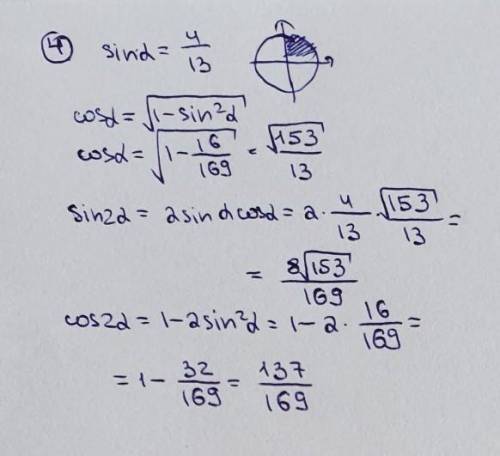 ④ sinα = 4/13
cosα = √(1-sin²α)
cosα = √(1 - 16/169) = √153/13
sin2α = 2sinαcosα = 2 · 4/13 · √153/13 =
= 8√153/169
cos2α = 1-2sin²α = 1-2 · 16/169 =
= 1 - 32/169 = 137/169